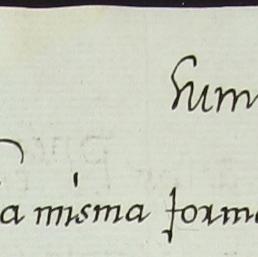 hum
a misma forma